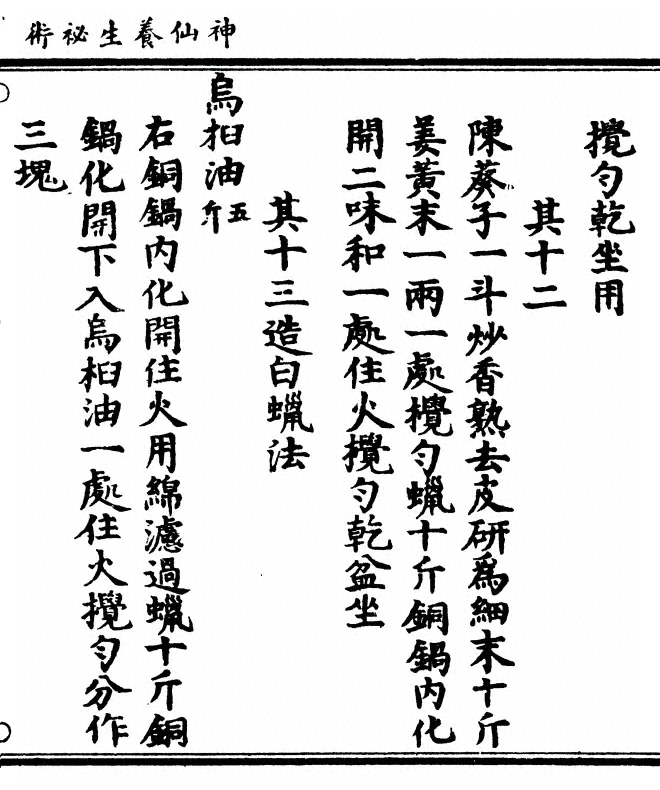 神仙養生祕術
攪勻乾坐用
其十二
陳葵子一斗炒香熟去皮研爲細末十斤
姜黃末一兩一處攪勻蠟十斤銅鍋內化
開二味和一處住火攪勻乾盆坐
其十三造白蠟法
烏桕油五斤
右銅鍋內化開住火用綿濾過蠟十斤銅
鍋化開下入烏桕油一處住火攪勻分作
三塊